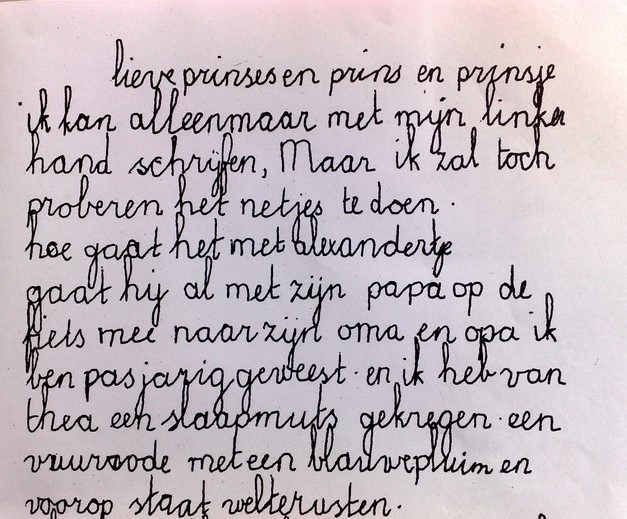 lieve prinses en prins en prinsje
ik kan alleenmaar met mijn linker
hand schrijfen, Maar ik zal toch
proberen het netjes te doen.
hoe gaat het met alexandertje
gaat hij al met zijn papa op de
fiets mee naar zijn oma en opa ik
ben pas jarig geweest. en ik heb van
thea een slaapmuts gekregen. een
vuurroode met een blauwe pluim en
voorop staat welterusten.